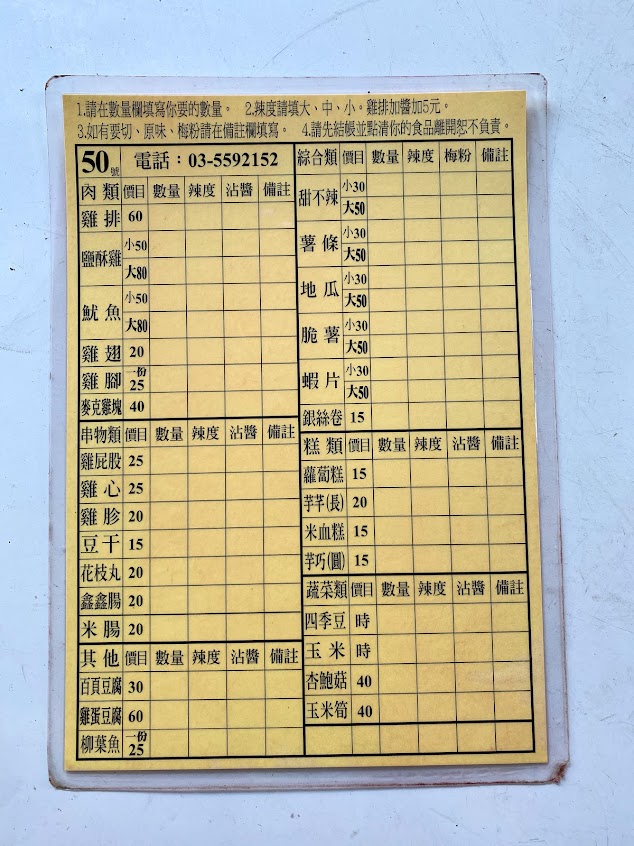 1.請在數量欄填寫你要的數量。 2.辣度請填大、中、小。雞排加醬加5元。
3.如有要切、原味、梅粉請在備註欄填寫。 4.請先結帳並點清你的食品離開恕不負責。
50號 電話：03-5592152
肉類 價目 數量 辣度 沾醬 備註
雞排 60
鹽酥雞 小50
大80
魷魚 小50
大80
雞翅 20
雞腳 一份25
麥克雞塊 40
串物類 價目 數量 辣度 沾醬 備註
雞屁股 25
雞心 25
雞胗 20
豆干 15
花枝丸 20
鑫鑫腸 20
米腸 20
其他 價目 數量 辣度 沾醬 備註
百頁豆腐 30
雞蛋豆腐 60
柳葉魚 一份25
綜合類 價目 數量 辣度 梅粉 備註
甜不辣 小30
大50
薯條 小30
大50
地瓜 小30
大50
脆薯 小30
大50
蝦片 小30
大50
銀絲卷 15
糕類 價目 數量 辣度 沾醬 備註
蘿蔔糕 15
芋芊(長) 20
米血糕 15
芋巧(圓) 15
蔬菜類 價目 數量 辣度 沾醬 備註
四季豆 時
玉米 時
杏鮑菇 40
玉米筍 40